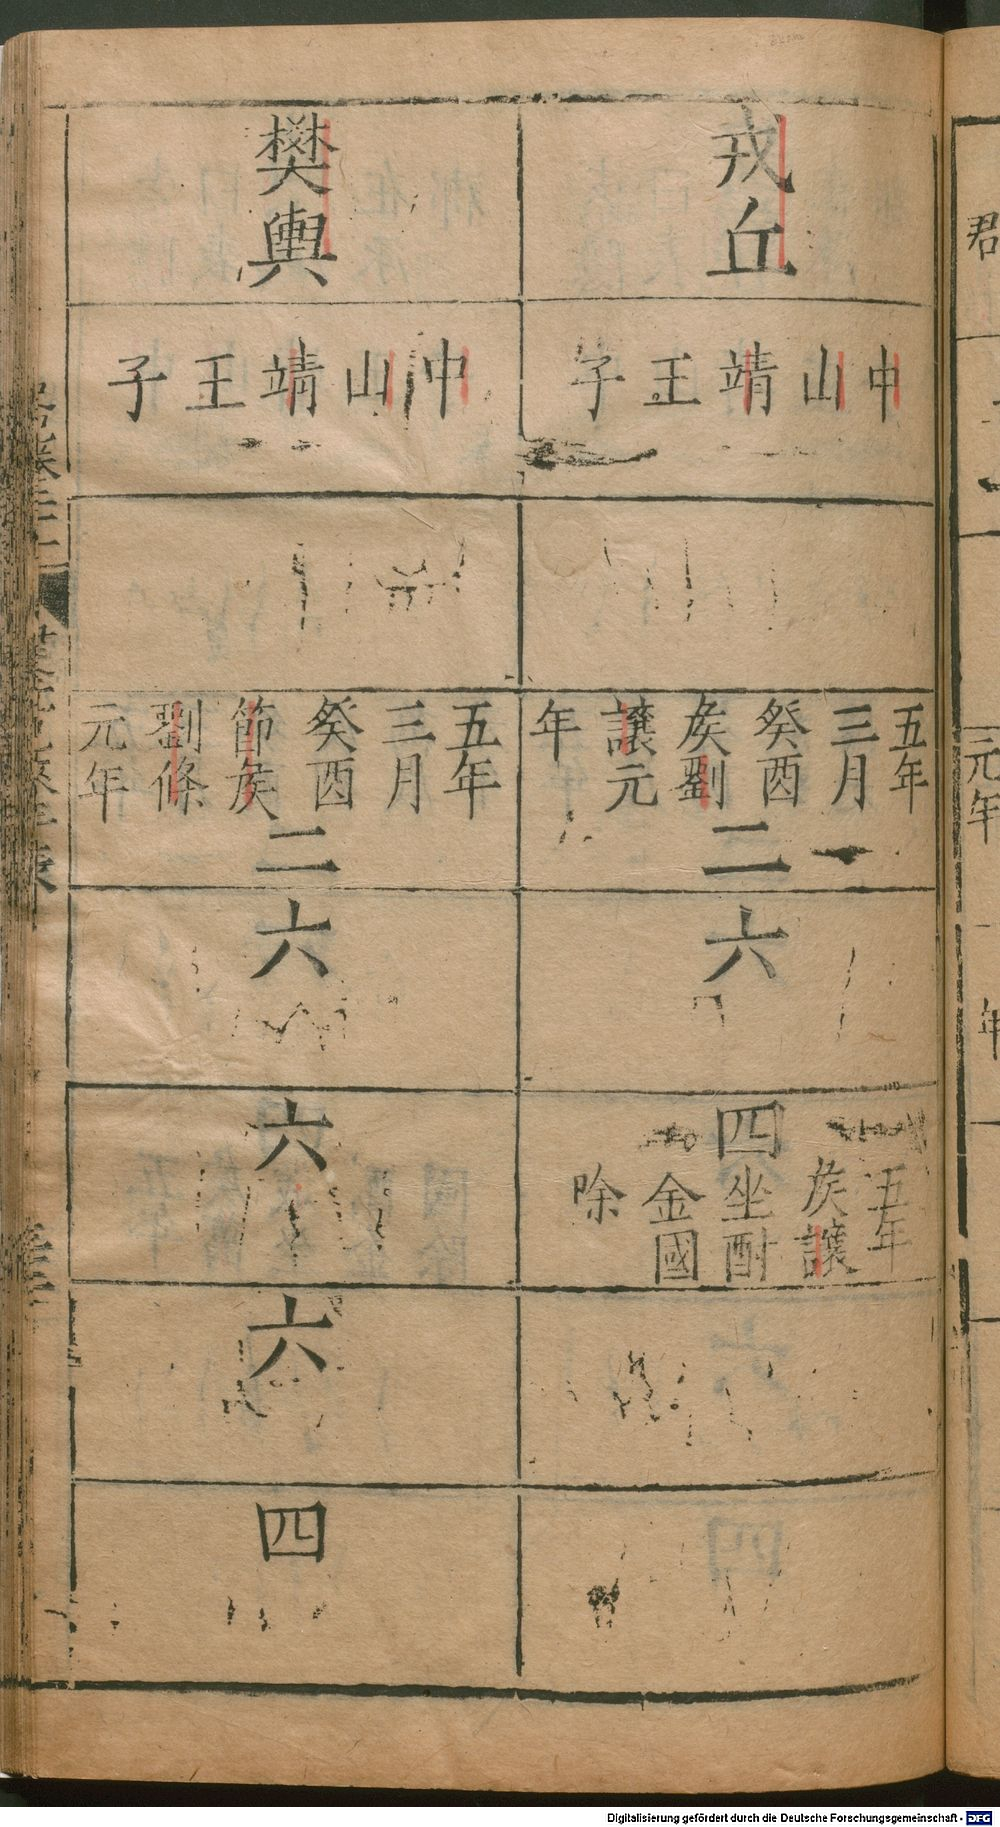 戎丘
中山靖王子
五年三月癸酉矦劉讓元年
二
六
四
五年矦讓坐酎金國除
樊輿
中山靖王子
五年三月癸酉節矦劉條元年
二
六
六
六
四
君
元年
年
Digitalisierung gefördert durch die Deutsche Forschungsgemeinschaft - DFG